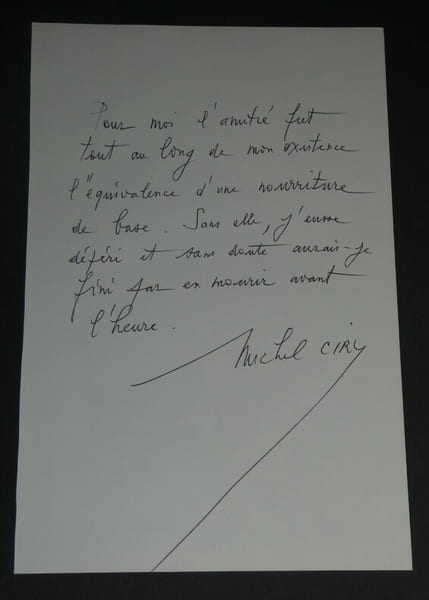 Pour moi l'amitié fut
tout au long de mon existence
l'équivalence d'une nourriture
de base. Sans elle, j'eusse
dépéri et sans doute aurais-je
fini par en mourir avant
l'heure.
Michel CIRY